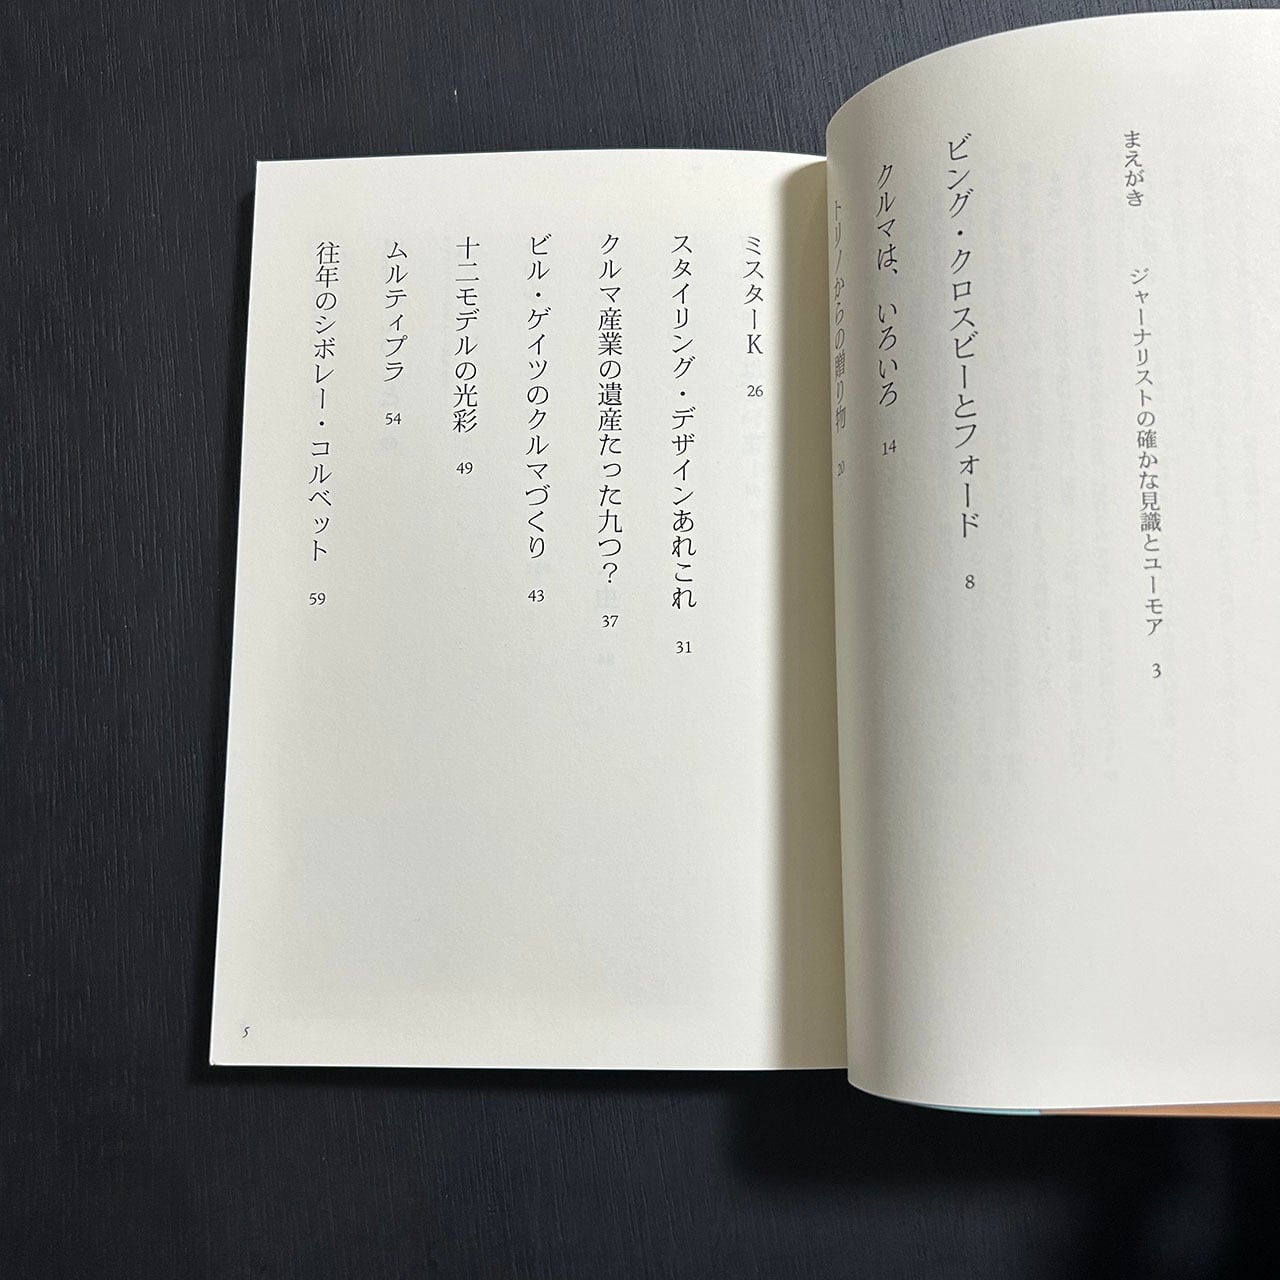 まえがき　ジャーナリストの確かな見識とユーモア 3
ビング・クロスビーとフォード 8
クルマは、いろいろ 14
トリノからの贈り物 20
ミスターK 26
スタイリング・デザインあれこれ 31
クルマ産業の遺産たった九つ？ 37
ビル・ゲイツのクルマづくり 43
十二モデルの光彩 49
ムルティプラ 54
往年のシボレー・コルベット 59
5